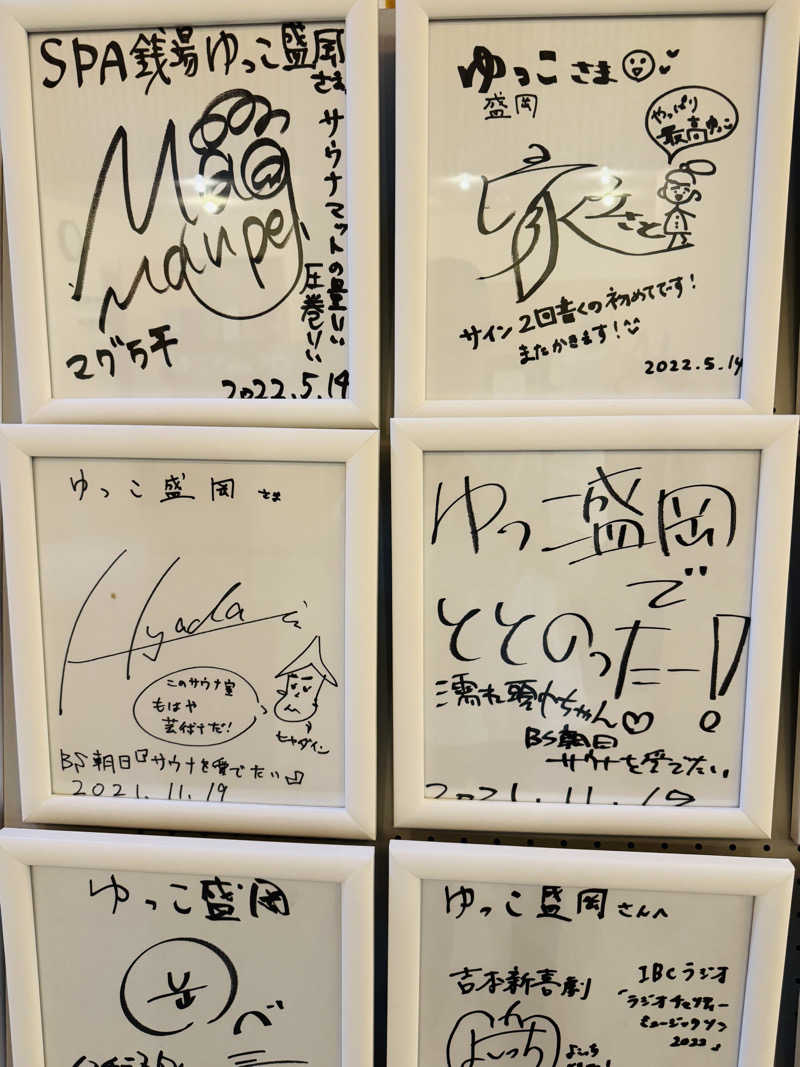 SPA銭湯ゆっこ盛岡
さま
サウナマットの量!!
圧巻!!
Mag
Manpei
マグ万平
2022.5.14
ゆっこさま
盛岡
やっぱり
最高ゆっこ
さと
サイン2回書くの初めてです!
またかきます!
2022.5.14
ゆっこ盛岡 さま
Hyada
このサウナ室
もはや
芸術だ!
ヒャダイン
BS朝日『サウナを愛でたい』
2021.11.19
ゆっこ盛岡
で
ととのったー!
濡れ頭巾ちゃん♡
BS朝日
サウナを愛でたい
2021.11.19
ゆっこ盛岡
ゆっこ盛岡さんへ
吉本新喜劇
IBCラジオ
「ラジオチャリティー
ミュージックソン
2022」
よしっち